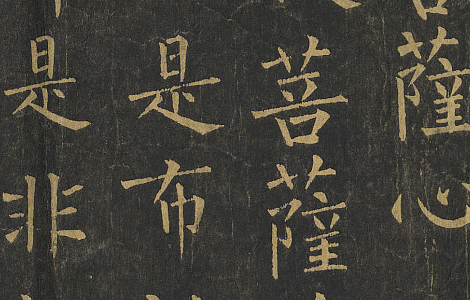 薩心
菩薩
是布
是非